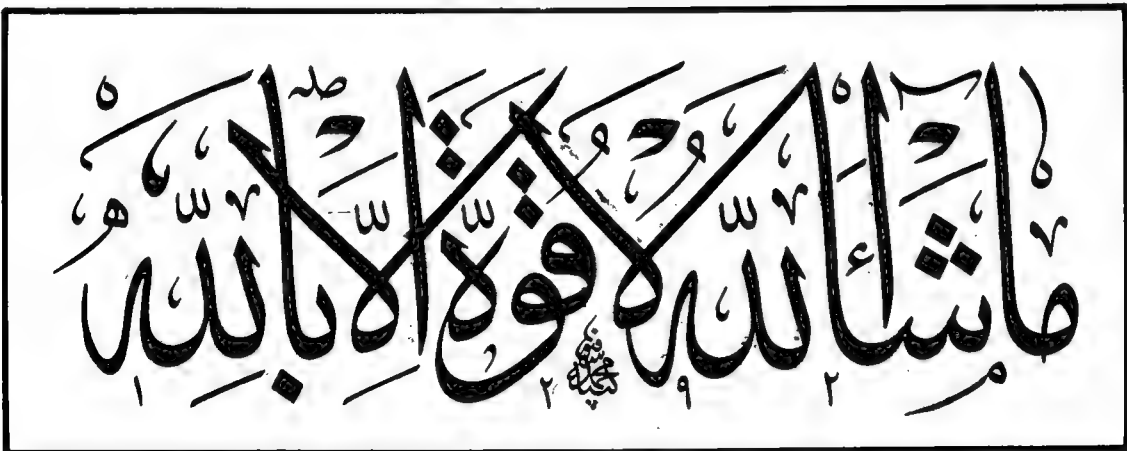 ما شاء الله لا قوة إلا بالله
١٢٩٢